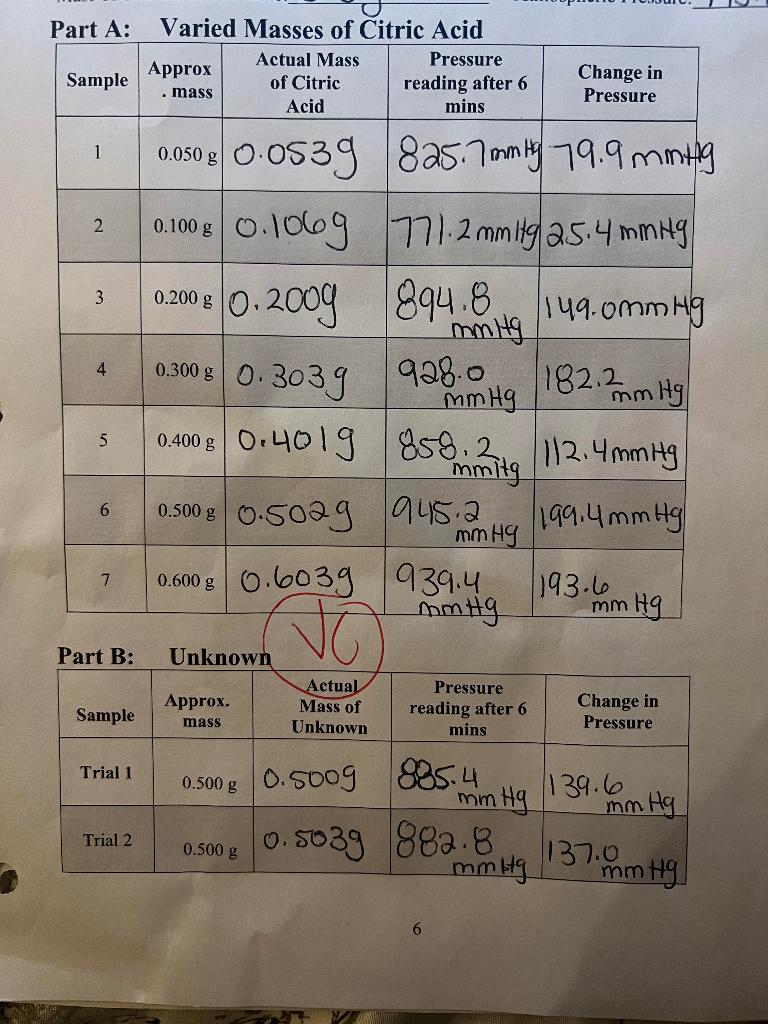 Part A: Varied Masses of Citric Acid
Sample
Approx
. mass
Actual Mass
of Citric
Acid
Pressure
reading after 6
mins
Change in
Pressure
1 0.050 g 0.053g 825.7 mmHg 79.9 mmHg
2 0.100 g 0.106g 771.2 mmHg 25.4 mmHg
3 0.200 g 0.200g 894.8 mmHg 149.0mmHg
4 0.300 g 0.303g 928.0 mmHg 182.2 mmHg
5 0.400 g 0.401g 858.2 mmHg 112.4mmHg
6 0.500 g 0.502g 945.2 mmHg 199.4 mmHg
7 0.600 g 0.603g 939.4 mmHg 193.6 mmHg
Part B: Unknown
Sample
Approx.
mass
Actual
Mass of
Unknown
Pressure
reading after 6
mins
Change in
Pressure
Trial 1 0.500 g 0.500g 885.4 mmHg 139.6 mmHg
Trial 2 0.500 g 0.503g 882.8 mmHg 137.0 mmHg
6